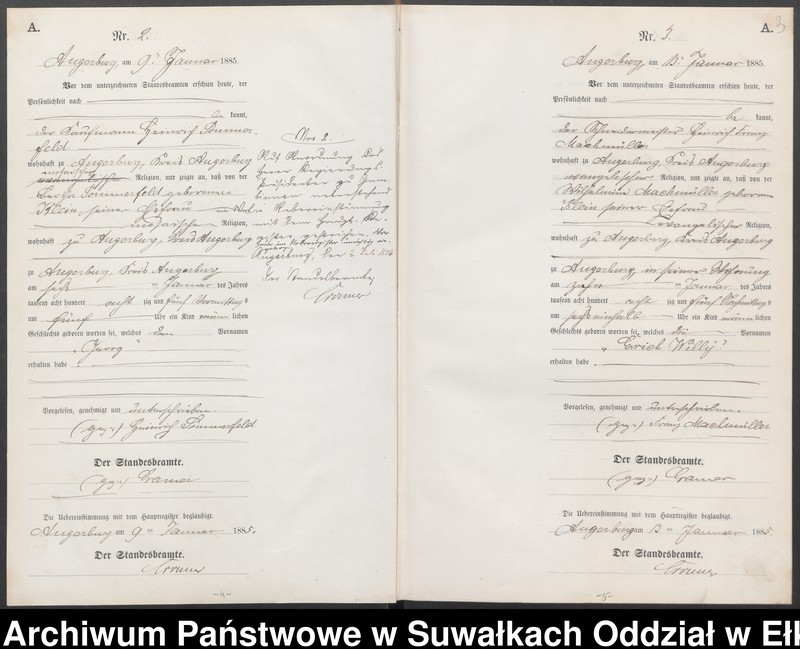 A.
Nr. 2.
Angerburg, am 9ten Januar 1885.
Vor dem unterzeichneten Standesbeamten erschien heute, der
Persönlichkeit nach
be kannt,
der Kaufmann Heinrich Sommer-
feldt
wohnhaft zu Angerburg, Kreis Angerburg
mosaischer
Religion, und zeigte an, daß von der
Sommerfeldt geborenen
Klein, seiner Ehefrau
mosaischer Religion,
wohnhaft zu Angerburg, Kreis Angerburg
zu Angerburg, Kreis Angerburg
am sechs ten Januar des Jahres
tausend acht hundert acht zig und fünf Vormittags
um fünf Uhr ein Kind männlichen
Geschlechts geboren worden sei, welches den Vornamen
"Georg"
erhalten habe.
Vorgelesen, genehmigt und unterschrieben.
(gez.) Heinrich Sommerfeldt
Der Standesbeamte.
(gez.) Cramer
Die Uebereinstimmung mit dem Hauptregister beglaubigt.
Angerburg am 9 ten Januar 1885.
Der Standesbeamte.
Cramer
-4-
Nro 2.
Auf Anordnung des
Herrn Regierungs
Präsidenten zu Gum-
binnen
in Uebereinstimmung
mit dem Haupt-Re-
gister gestrichen.
Angerburg, den
Der Standesbeamte
Cramer
A. 3
Nr. 3.
Angerburg, am 13ten Januar 1885.
Vor dem unterzeichneten Standesbeamten erschien heute, der
Persönlichkeit nach
be kannt,
der Schneidermeister Heinrich Franz
Machmüller
wohnhaft zu Angerburg, Kreis Angerburg
evangelischer Religion, und zeigte an, daß von der
Wilhelmine Machmüller geborenen
Klein seiner Ehefrau
evangelischer Religion,
wohnhaft zu Angerburg, Kreis Angerburg
zu Angerburg, in seiner Wohnung
am zehn ten Januar des Jahres
tausend acht hundert acht zig und fünf Nachmittags
um sechs einhalb Uhr ein Kind männlichen
Geschlechts geboren worden sei, welches die Vornamen
"Erich Willy"
erhalten habe.
Vorgelesen, genehmigt und unterschrieben.
(gez.) Franz Machmüller
Der Standesbeamte.
(gez.) Cramer
Die Uebereinstimmung mit dem Hauptregister beglaubigt.
Angerburg am 13 ten Januar 1885.
Der Standesbeamte.
Cramer
-5-
Archiwum Państwowe w Suwałkach Oddział w Ełk